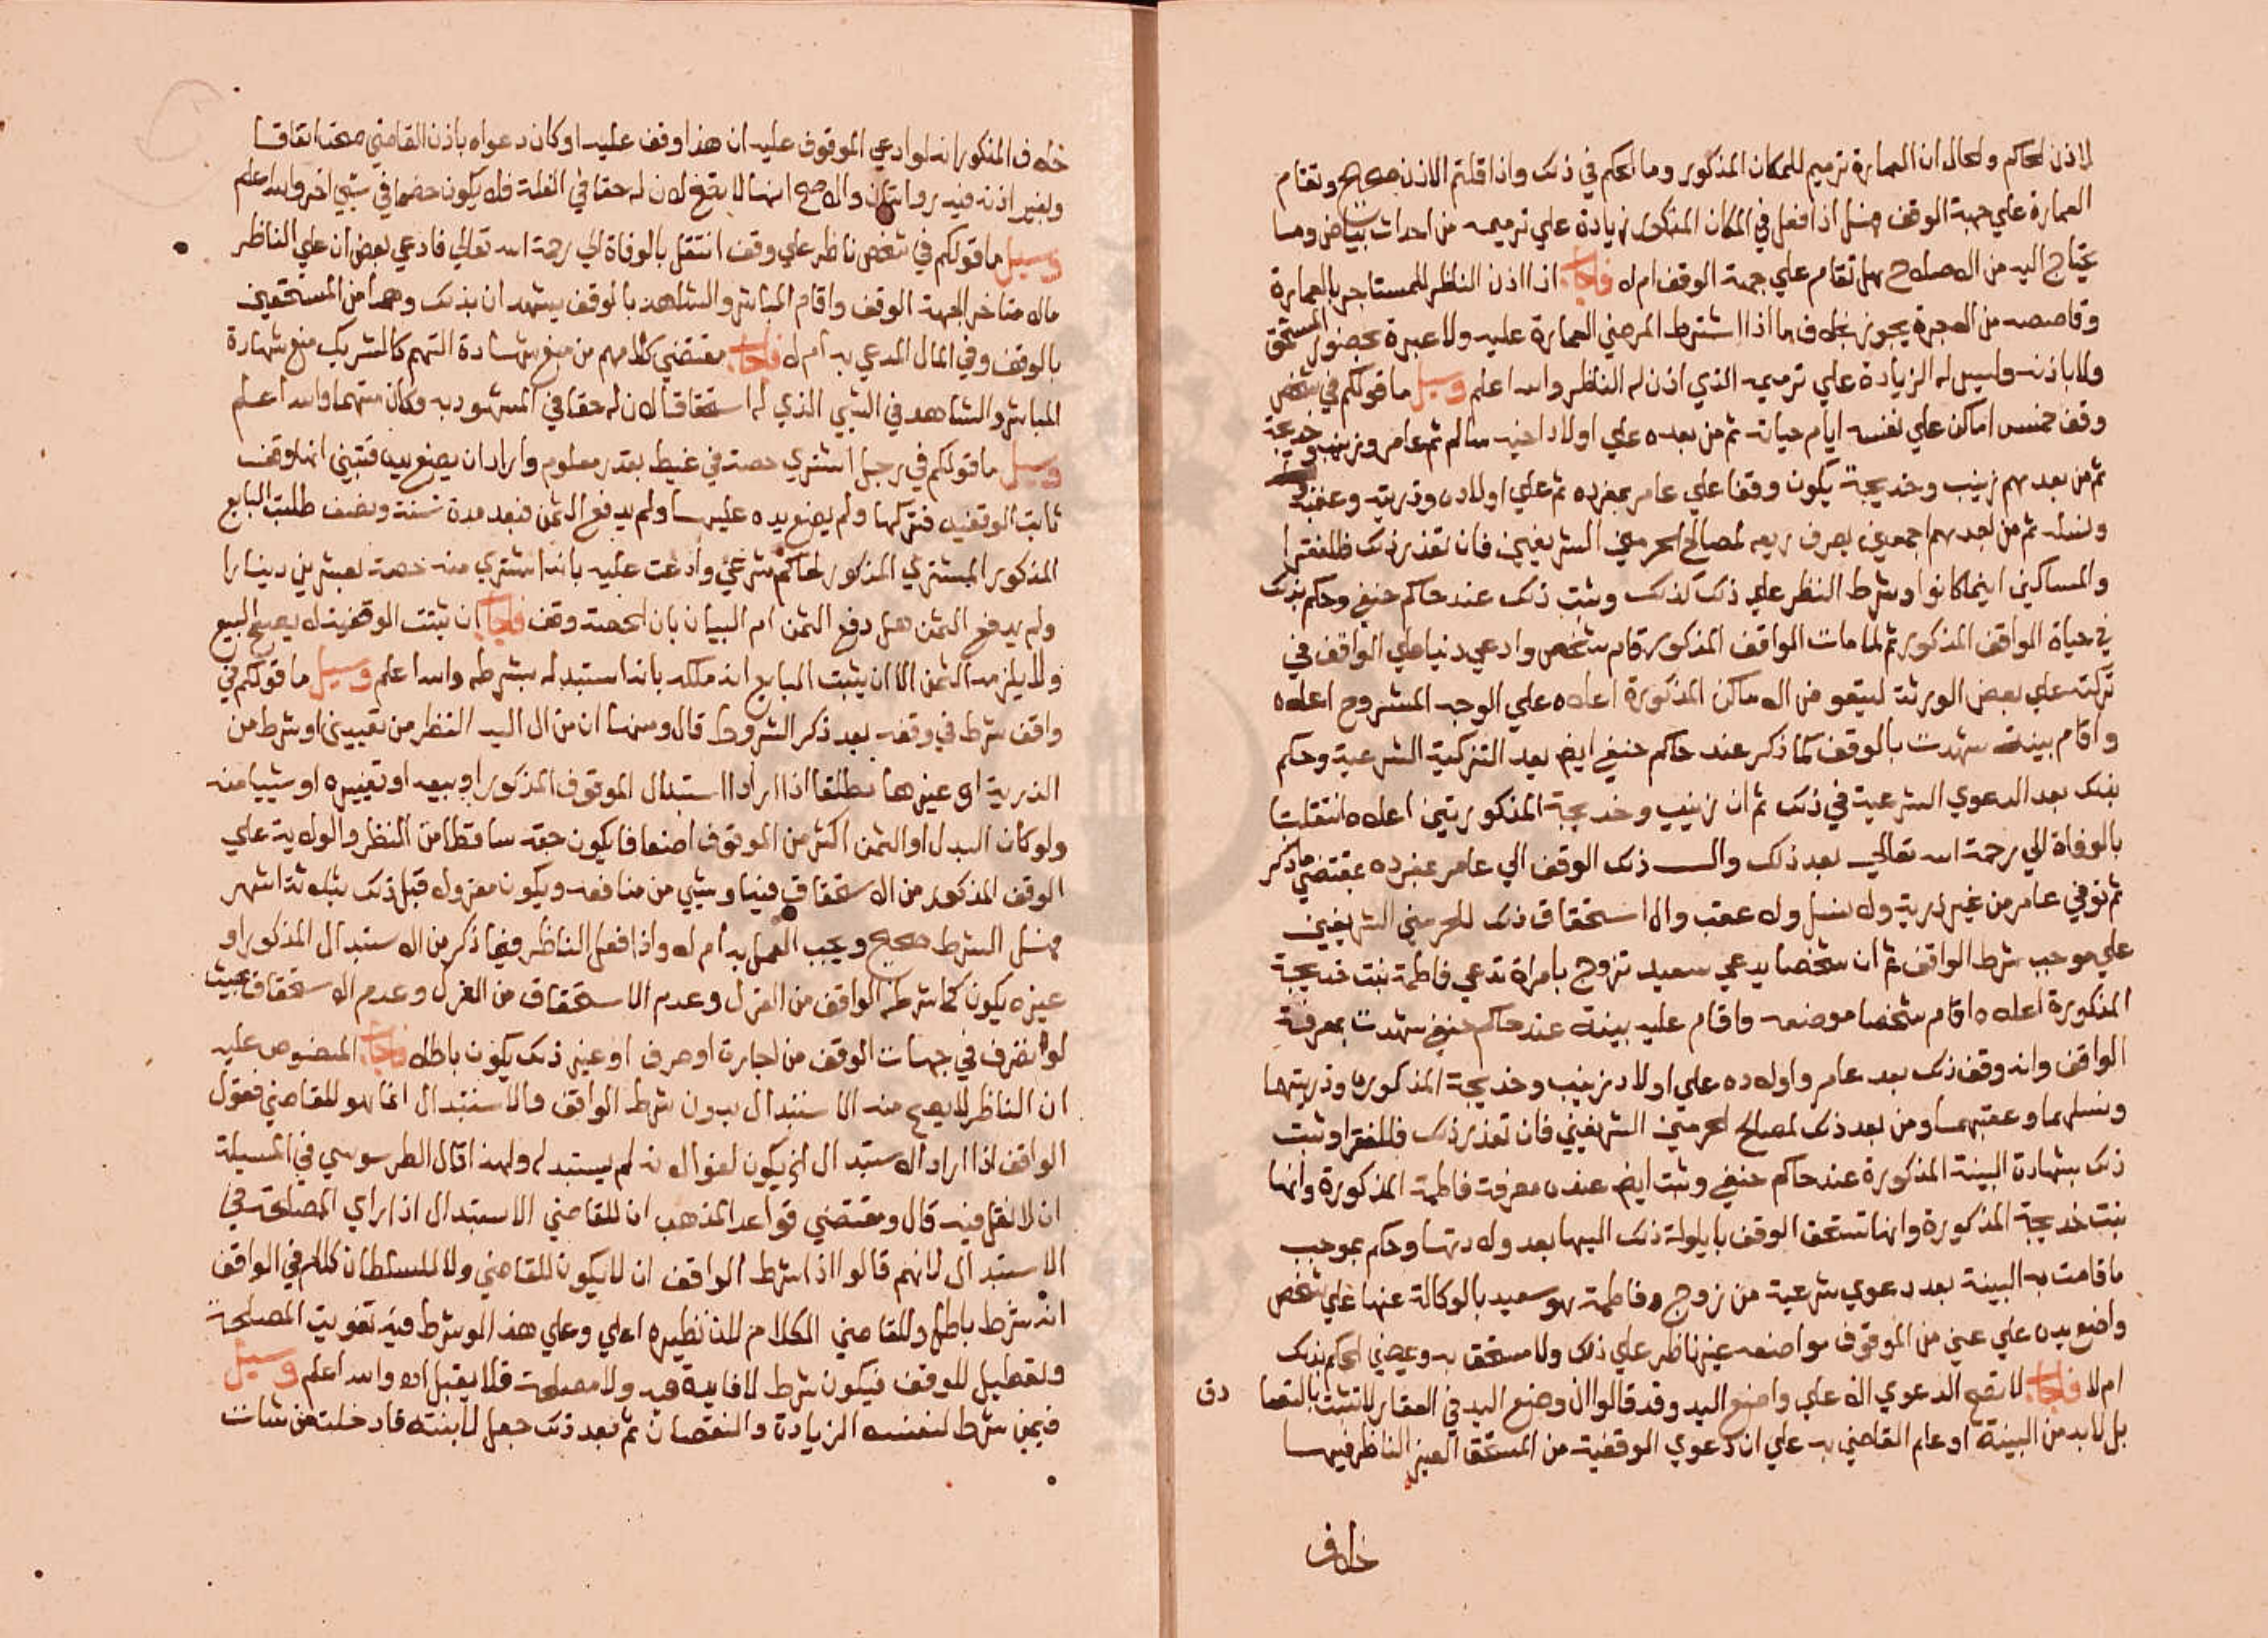 لاذن لحاكم ولحال ان العمارة ترميم للمكان المذكور وما لحكم في ذلك واذا قلتم الاذن صحيح وتقام
العمارة علي جهة الوقف فهل اذا فعل في المكان المذكور زيادة علي ترميمه من احداث بياض وما
يحتاج اليه من الاصلاح هل تقام علي جهة الوقف ام لا فاجاب اذا اذن النظر للمستاجر بالعمارة
وقاصصه من الاجرة يجوز بخلاف ما اذا اشترط المرضي العمارة عليه ولا عبرة بحضور المستحق
ولا باذنه وليس له الزيادة علي ترميمه الذي اذن له الناظر والله اعلم وسيل ما قولكم في شخص
وقف خمس اماكن علي نفسه ايام حياته ثم من بعده علي اولاد اخيه سالم ثم عامر وزينب وخديجة
ثم من بعدهم زينب وخديجة يكون وقفا علي عامر بمفرده ثم علي اولاده وذريته وعقبه
ونسله ثم من بعدهم اجمعين يصرف ريعه لمصالح الحرمين الشريفين فان تعذر ذلك فللفقرا
والمساكين اينما كانوا وشرط النظر علي ذلك كذلك وثبت ذلك عند حاكم حنفي وحكم بذلك
في حياة الواقف المذكور ثم لما مات الواقف المذكور قام شخص وادعي دينا علي الواقف في
تركته علي بعض الورثة ليتقو من الاماكن المذكورة اعلاه علي الوجه المشروح اعلاه
واقام بينة شهدت بالوقف كما ذكر عند حاكم حنفي ايض بعد التزكية الشرعية وحكم
بذلك بعد الدعوي الشرعية في ذلك ثم ان زينب وخديجة المذكورتين اعلاه انتقلتا
بالوفاة الي رحمة الله تعالي بعد ذلك وال ذلك الوقف الي عامر بمفرده بمقتضي ما ذكر
ثم توفي عامر من غير ذرية ولا نسل ولا عقب وال استحقاق ذلك للحرمين الشريفين
علي موجب شرط الواقف ثم ان شخصا يدعي سعيد تزوج بامراة تدعي فاطمة بنت خديجة
المذكورة اعلاه اقام شخصا موضعه واقام عليه بينة عند حاكم حنفي شهدت بمعرفة
الواقف وانه وقف ذلك بعد عامر واولاده علي اولاد زينب وخديجة المذكورة وذريتهما
ونسلهما وعقبهما ومن بعد ذلك لمصالح الحرمين الشريفين فان تعذر ذلك فللفقرا وثبت
ذلك بشهادة البينة المذكورة عند حاكم حنفي وثبت ايض عنده معرفة فاطمة المذكورة وانها
بنت خديجة المذكورة وانها تستحق الوقف بايلولة ذلك اليها بعد ولادتها وحكم بموجب
ما قامت به البينة بعد دعوي شرعية من زوج فاطمة هو سعيد بالوكالة عنها علي شخص
واضع يده علي عين من الموقوف مواضعه غير ناظر علي ذلك ولا مستحق به وعيضي لحكم بذلك
ام لا فاجاب لا تصح الدعوي الا علي واضع اليد وقد قالوا ان وضع اليد في العقار لا تثبت بالتصا دق
بل لابد من البينة او علم القاضي به علي ان دعوي الوقفية من المستحق الغير الناظر فيها
خلاف
خلاف المذكور انه لو ادعي الموقوف عليه ان هذا وقف عليه او كان دعواه باذن القاضي صحت اتفاقا
وبغير اذنه فيه روايتان والاصح انها لا تصح لان له حقا في الغلة فلا يكون خصما في شيي اخر والله اعلم
وسيل ما قولكم في شخص ناظر علي وقف انتقل بالوفاة الي رحمة الله تعالي فادعي بعض ان علي الناظر
مال متاخر لجهة الوقف واقام المباشر والشاهد بالوقف يشهدان بذلك وهما من المستحقين
بالوقف وفي المال المدعي به ام لا فاجاب مقتضي كلامهم من منع شهادة التهم كالشريك منع شهادة
المباشر والشاهد في الشيي الذي له استحقاقا لان له حقا في المشهود به وكان متهما والله اعلم
وسيل ما قولكم في رجل اشتري حصة في غيط بقدر معلوم واراد ان يضع يده فتبيني انها وقف
ثابت الوقفيه فتركها ولم يضع يده عليها ولم يدفع الثمن فبعد مدة سنة ونصف طلبت البايع
المذكور المشتري المذكور لحاكم شرعي وادعت عليه بانه اشتري منه حصة بعشرين دينارا
ولم يدفع الثمن هل دفع الثمن ام البيان بان الحصة وقف فاجاب ان ثبتت الوقفية لا يصح البيع
ولا يلزمه الثمن الا ان يثبت البايع انه ملكه بانه استبدله بشرطه والله اعلم وسيل ما قولكم في
واقف شرط في وقفه بعد ذكر الشروط قال ومنها ان من ال اليه النظر من تعييني او شرط من
الذرية او غيرها مطلقا اذا اراد استبدال الموقوف المذكور او بيعه او تغييره او شييا منه
ولو كان البدل او الثمن اكثر من الموقوف اضعافا يكون حقه ساقطا من النظر والولاية علي
الوقف المذكور من الاستحقاق فيها وشيي من منافعه ويكون معزولا قبل ذلك بثلاثة اشهر
فهل الشرط صحيح ويجب العمل به ام لا واذا فعل الناظر فيما ذكر من الاستبدال المذكور او
غيره يكون كما شرطه الواقف من العزل وعدم الاستحقاق من العزل وعدم الاستحقاق بحيث
لو تصرف في جهات الوقف من اجارة او صرف او غير ذلك يكون باطلا فاجاب المنصوص عليه
ان الناظر لا يصح منه الاستبدال بدون شرط الواقف والاستبدال انما هو للقاضي فقول
الواقف اذا اراد الاستبدال الخ يكون لغوا لانه لم يستبدله ولهذا قال الطرسوسي في المسيلة
ان لا نقل فيه قال ومقتضي قواعد المذهب ان للقاضي الاستبدال اذا راي المصلحة في
الاستبدال لانهم قالوا اذا شرط الواقف ان لا يكون للقاضي ولا للسلطان كلام في الواقف
انه شرط باطل وللقاضي الكلام لان نظيره اعلي وعلي هذا لو شرط فيه تفويت المصلحة
وتعطيل للوقف فيكون شرط لا فايدة فيه ولا مصلحة فلا يقبل اه والله اعلم وسيل
فيمن شرط لنفسه الزيادة والنقصان ثم بعد ذلك جعل لابنته فادخلت من شات